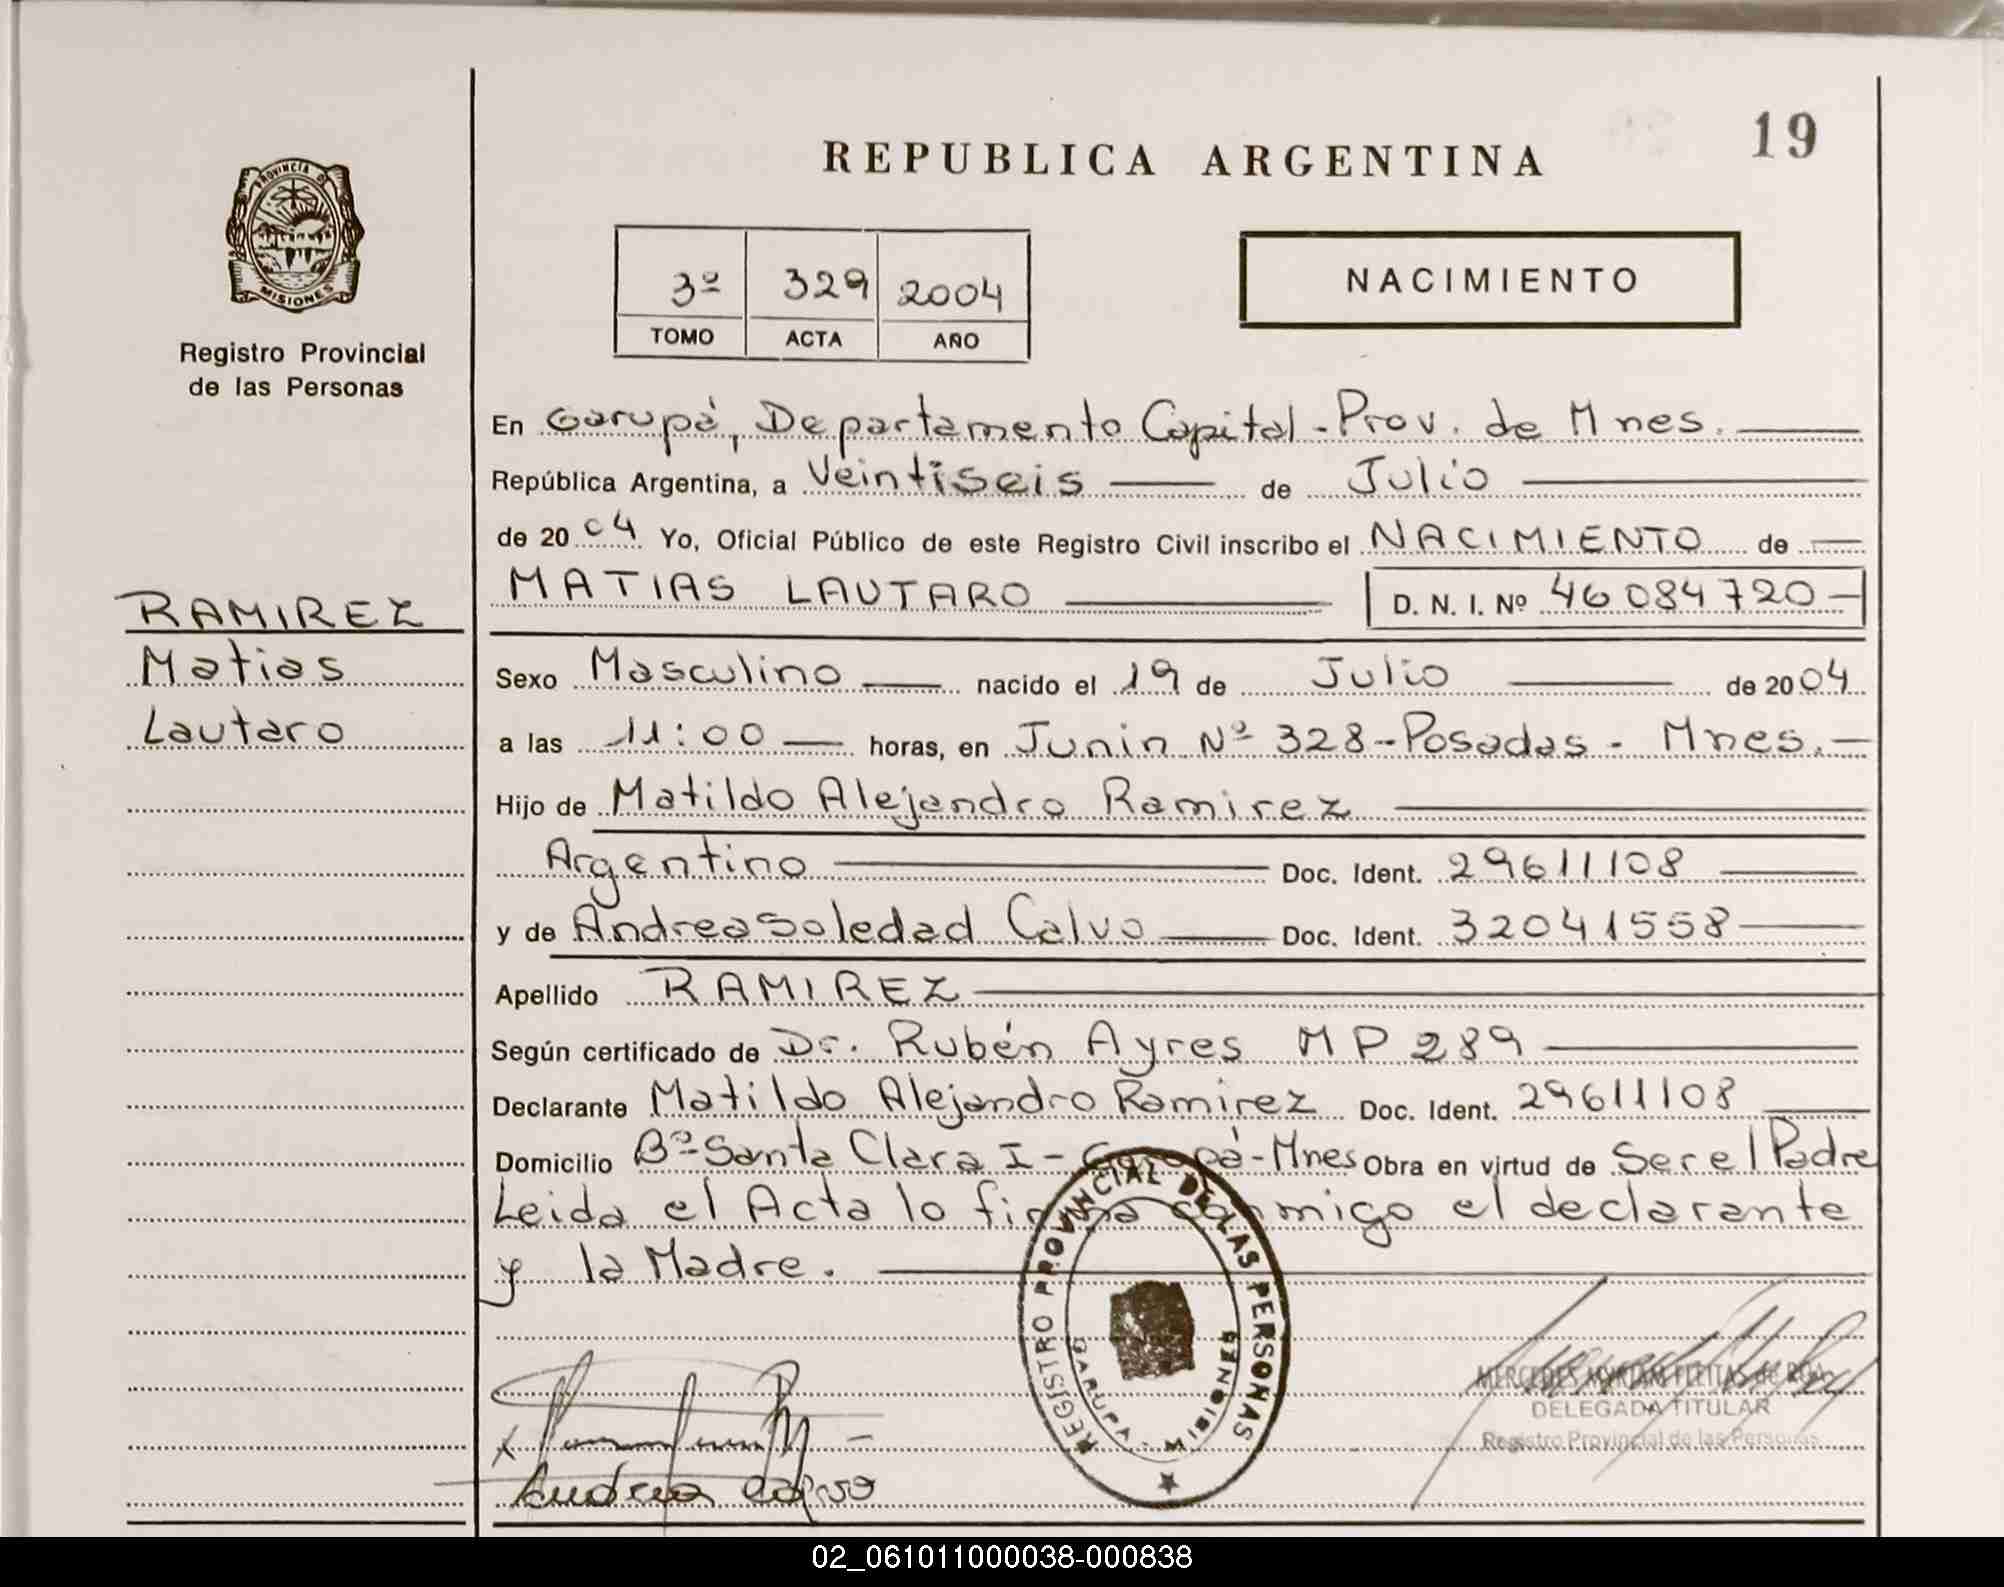 19
REPUBLICA ARGENTINA
PROVINCIA DE
MISIONES
Registro Provincial
de las Personas
3º 329 2004
TOMO ACTA AÑO
NACIMIENTO
En Garupá, Departamento Capital - Prov. de Mnes.
República Argentina, a Veintiseis de Julio
de 2004 Yo, Oficial Público de este Registro Civil inscribo el NACIMIENTO de
MATIAS LAUTARO D. N. I. Nº 46084720
RAMIREZ
Matias
Lautaro
Sexo Masculino nacido el 19 de Julio de 2004
a las 11:00 horas, en Junin Nº 328 - Posadas - Mnes.
Hijo de Matildo Alejandro Ramirez
Argentino Doc. Ident. 29611108
y de Andrea Soledad Calvo Doc. Ident. 32041558
Apellido RAMIREZ
Según certificado de Dr. Rubén Ayres MP 289
Declarante Matildo Alejandro Ramirez Doc. Ident. 29611108
Domicilio Bº Santa Clara I - Garupá - Mnes Obra en virtud de Ser el Padre
Leida el Acta lo firma conmigo el declarante
y la Madre.
REGISTRO PROVINCIAL DE LAS PERSONAS
GARUPA - MISIONES
MERCEDES MYRIAM FLEITAS de ROA
DELEGADA TITULAR
Registro Provincial de las Personas
Andrea Calvo
02_061011000038-000838